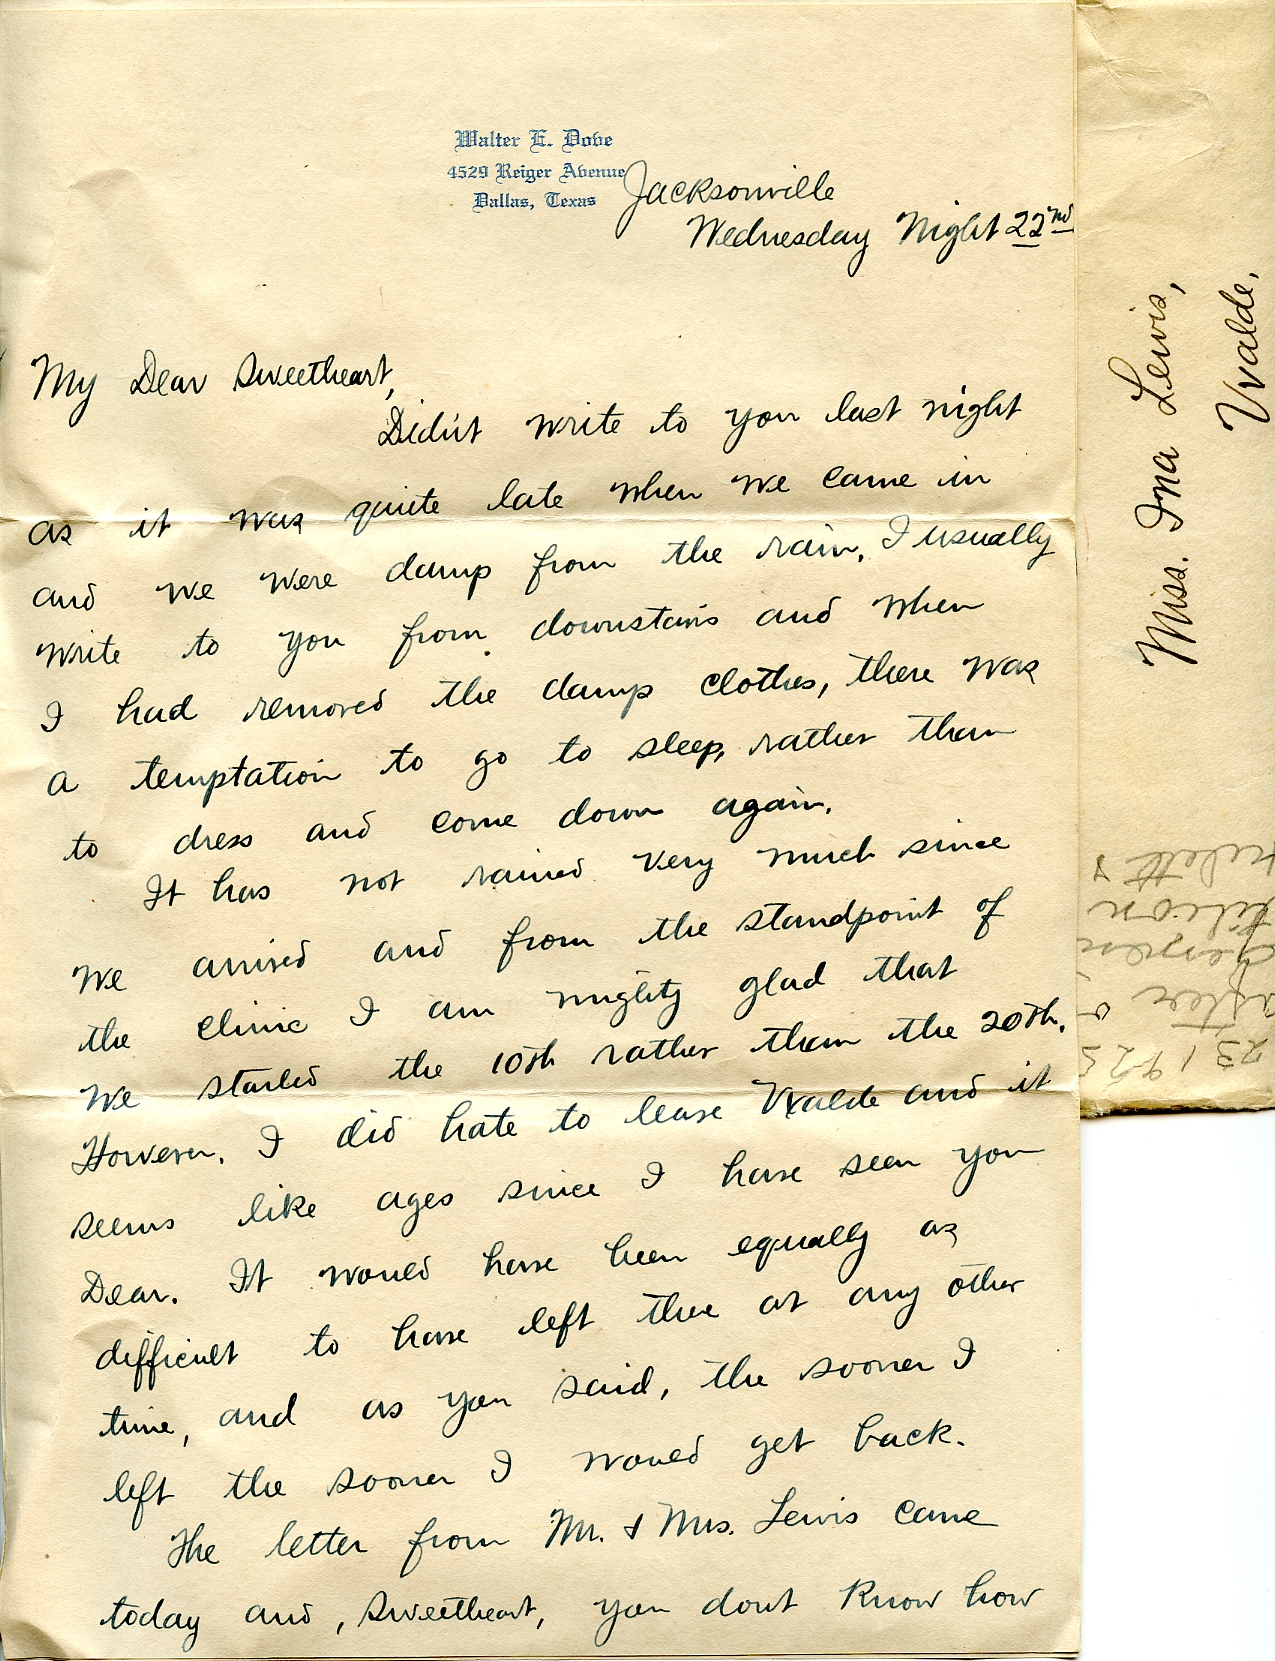 Walter E. Dove
4529 Reiger Avenue
Dallas, Texas
Jacksonville
Wednesday Night 22nd
My Dear Sweetheart,
Didn't write to you last night
as it was quite late when we came in
and we were damp from the rain. I usually
write to you from downstairs and when
I had removed the damp clothes, there was
a temptation to go to sleep, rather than
to dress and come down again.
It has not rained very much since
we arrived and from the standpoint of
the clinic I am mighty glad that
we started the 10th rather than the 20th.
However, I did hate to leave Uvalde and it
seems like ages since I have seen you
Dear. It would have been equally as
difficult to have left there at any other
time, and as you said, the sooner I
left the sooner I would get back.
The letter from Mr. & Mrs. Lewis came
today and, sweetheart, you dont know how
Miss. Ina Lewis,
Uvalde,
23 1925